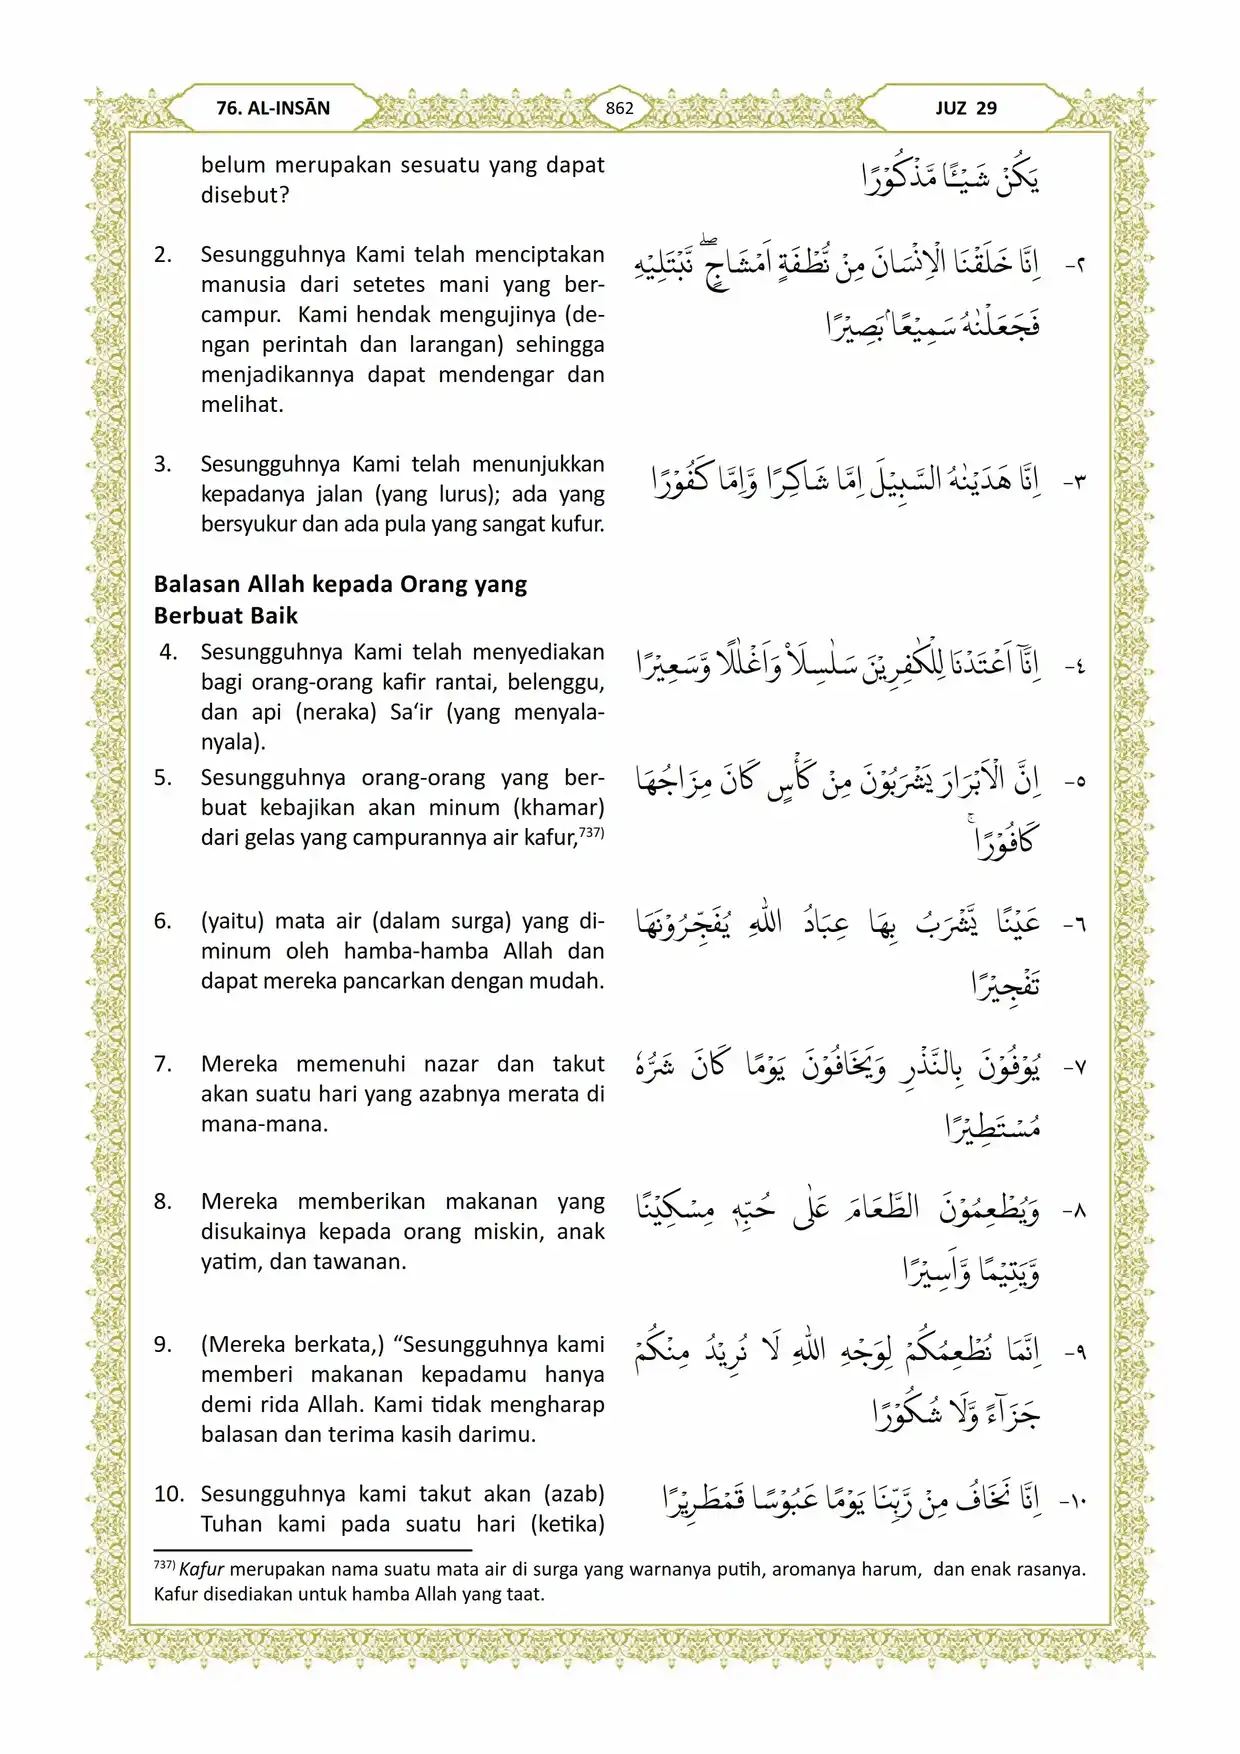 76. AL-INSĀN
862
JUZ 29
belum merupakan sesuatu yang dapat
disebut?
يَكُنْ شَيْـًٔا مَّذْكُوْرًا
2. Sesungguhnya Kami telah menciptakan
manusia dari setetes mani yang ber-
campur. Kami hendak mengujinya (de-
ngan perintah dan larangan) sehingga
menjadikannya dapat mendengar dan
melihat.
٢- اِنَّا خَلَقْنَا الْاِنْسَانَ مِنْ نُّطْفَةٍ اَمْشَاجٍۖ نَّبْتَلِيْهِ
فَجَعَلْنٰهُ سَمِيْعًاۢ بَصِيْرًا
3. Sesungguhnya Kami telah menunjukkan
kepadanya jalan (yang lurus); ada yang
bersyukur dan ada pula yang sangat kufur.
٣- اِنَّا هَدَيْنٰهُ السَّبِيْلَ اِمَّا شَاكِرًا وَّاِمَّا كَفُوْرًا
Balasan Allah kepada Orang yang
Berbuat Baik
4. Sesungguhnya Kami telah menyediakan
bagi orang-orang kafir rantai, belenggu,
dan api (neraka) Sa‘ir (yang menyala-
nyala).
٤- اِنَّآ اَعْتَدْنَا لِلْكٰفِرِيْنَ سَلٰسِلَا۟ وَاَغْلٰلًا وَّسَعِيْرًا
5. Sesungguhnya orang-orang yang ber-
buat kebajikan akan minum (khamar)
dari gelas yang campurannya air kafur,737)
٥- اِنَّ الْاَبْرَارَ يَشْرَبُوْنَ مِنْ كَأْسٍ كَانَ مِزَاجُهَا
كَافُوْرًاۚ
6. (yaitu) mata air (dalam surga) yang di-
minum oleh hamba-hamba Allah dan
dapat mereka pancarkan dengan mudah.
٦- عَيْنًا يَّشْرَبُ بِهَا عِبَادُ اللّٰهِ يُفَجِّرُوْنَهَا
تَفْجِيْرًا
7. Mereka memenuhi nazar dan takut
akan suatu hari yang azabnya merata di
mana-mana.
٧- يُوْفُوْنَ بِالنَّذْرِ وَيَخَافُوْنَ يَوْمًا كَانَ شَرُّهٗ
مُسْتَطِيْرًا
8. Mereka memberikan makanan yang
disukainya kepada orang miskin, anak
yatim, dan tawanan.
٨- وَيُطْعِمُوْنَ الطَّعَامَ عَلٰى حُبِّهٖ مِسْكِيْنًا
وَّيَتِيْمًا وَّاَسِيْرًا
9. (Mereka berkata,) “Sesungguhnya kami
memberi makanan kepadamu hanya
demi rida Allah. Kami tidak mengharap
balasan dan terima kasih darimu.
٩- اِنَّمَا نُطْعِمُكُمْ لِوَجْهِ اللّٰهِ لَا نُرِيْدُ مِنْكُمْ
جَزَاۤءً وَّلَا شُكُوْرًا
10. Sesungguhnya kami takut akan (azab)
Tuhan kami pada suatu hari (ketika)
١٠- اِنَّا نَخَافُ مِنْ رَّبِّنَا يَوْمًا عَبُوْسًا قَمْطَرِيْرًا
737) Kafur merupakan nama suatu mata air di surga yang warnanya putih, aromanya harum, dan enak rasanya.
Kafur disediakan untuk hamba Allah yang taat.